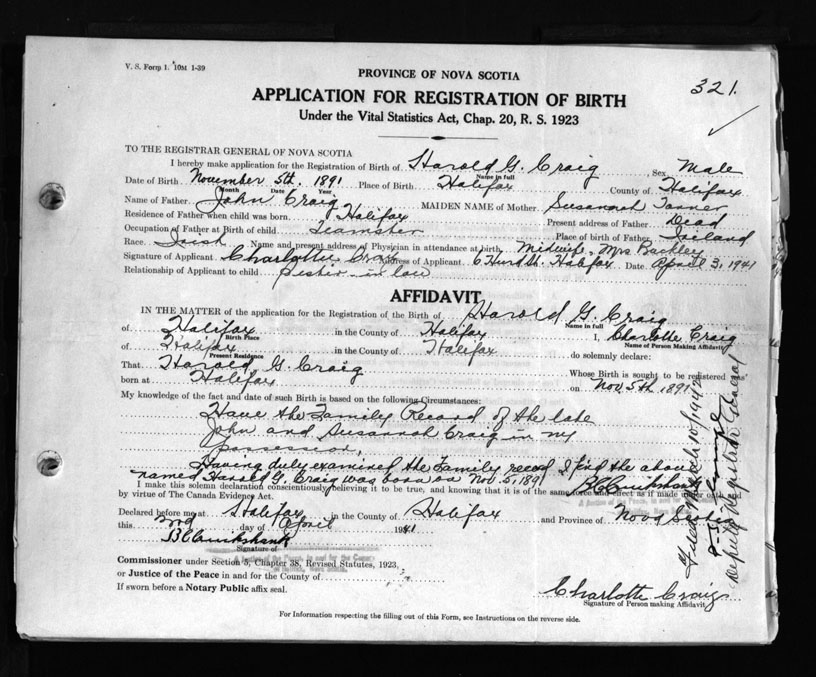 V. S. Form 1. 10M 1-39
321.
PROVINCE OF NOVA SCOTIA
APPLICATION FOR REGISTRATION OF BIRTH
Under the Vital Statistics Act, Chap. 20, R. S. 1923
TO THE REGISTRAR GENERAL OF NOVA SCOTIA
I hereby make application for the Registration of Birth of Harold G. Craig Sex Male
Name in full
Date of Birth November 5th. 1891 Place of Birth Halifax County of Halifax
Month Date Year
Name of Father John Craig MAIDEN NAME of Mother Susannah Tanner
Residence of Father when child was born Halifax Present address of Father Dead
Occupation of Father at Birth of child Teamster Place of birth of Father Ireland
Race Irish Name and present address of Physician in attendance at birth Midwife, Mrs
Signature of Applicant Charlotte Craig Address of Applicant 6 Hurd St. Halifax Date April 3, 1941
Relationship of Applicant to child sister-in law
AFFIDAVIT
IN THE MATTER of the application for the Registration of the Birth of Harold G. Craig
Name in full
of Halifax in the County of Halifax I, Charlotte Craig
Birth Place Name of Person Making Affidavit
of Halifax in the County of Halifax do solemnly declare:
Present Residence
That Harold G. Craig Whose Birth is sought to be registered was
born at Halifax on Nov. 5th 1891
My knowledge of the fact and date of such Birth is based on the following Circumstances:
Have the Family Record of the late
John and Susannah Craig in my
possession,
Having duly examined the Family record I find the above
named Harold G. Craig was born on Nov. 5, 1891
I make this solemn declaration conscientiously believing it to be true, and knowing that it is of the same force and effect as if made under oath
by virtue of The Canada Evidence Act.
Declared before me at Halifax in the County of Halifax and Province of Nova Scotia
this 3rd day of April 1941
B C Cruikshank
Signature of
Commissioner under Section 5, Chapter 38, Revised Statutes, 1923,
or Justice of the Peace in and for the County of
If sworn before a Notary Public affix seal.
Charlotte Craig
Signature of Person making Affidavit
For Information respecting the filling out of this Form, see Instructions on the reverse side.
Deputy Registrar General